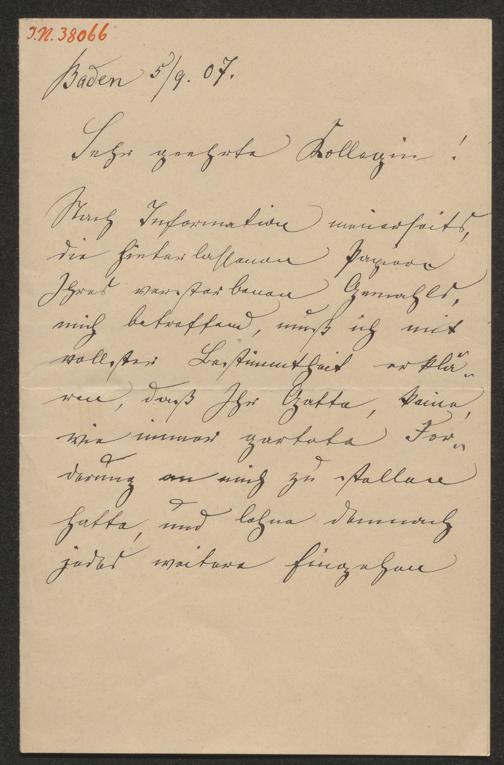 J.N. 38066
Baden 5/9. 07.
Sehr geehrte Kollegin!
Nach Information meinerseits,
die hinterlassenen Papiere
Ihres verstorbenen Gemahls,
mich betreffend, muß ich mit
vollster Bestimmtheit erklä„
ren, daß Ihr Gatte, keine,
wie immer geartete For„
derung an mich zu stellen
hatte, und lehne demnach
jedes weitere Eingehen